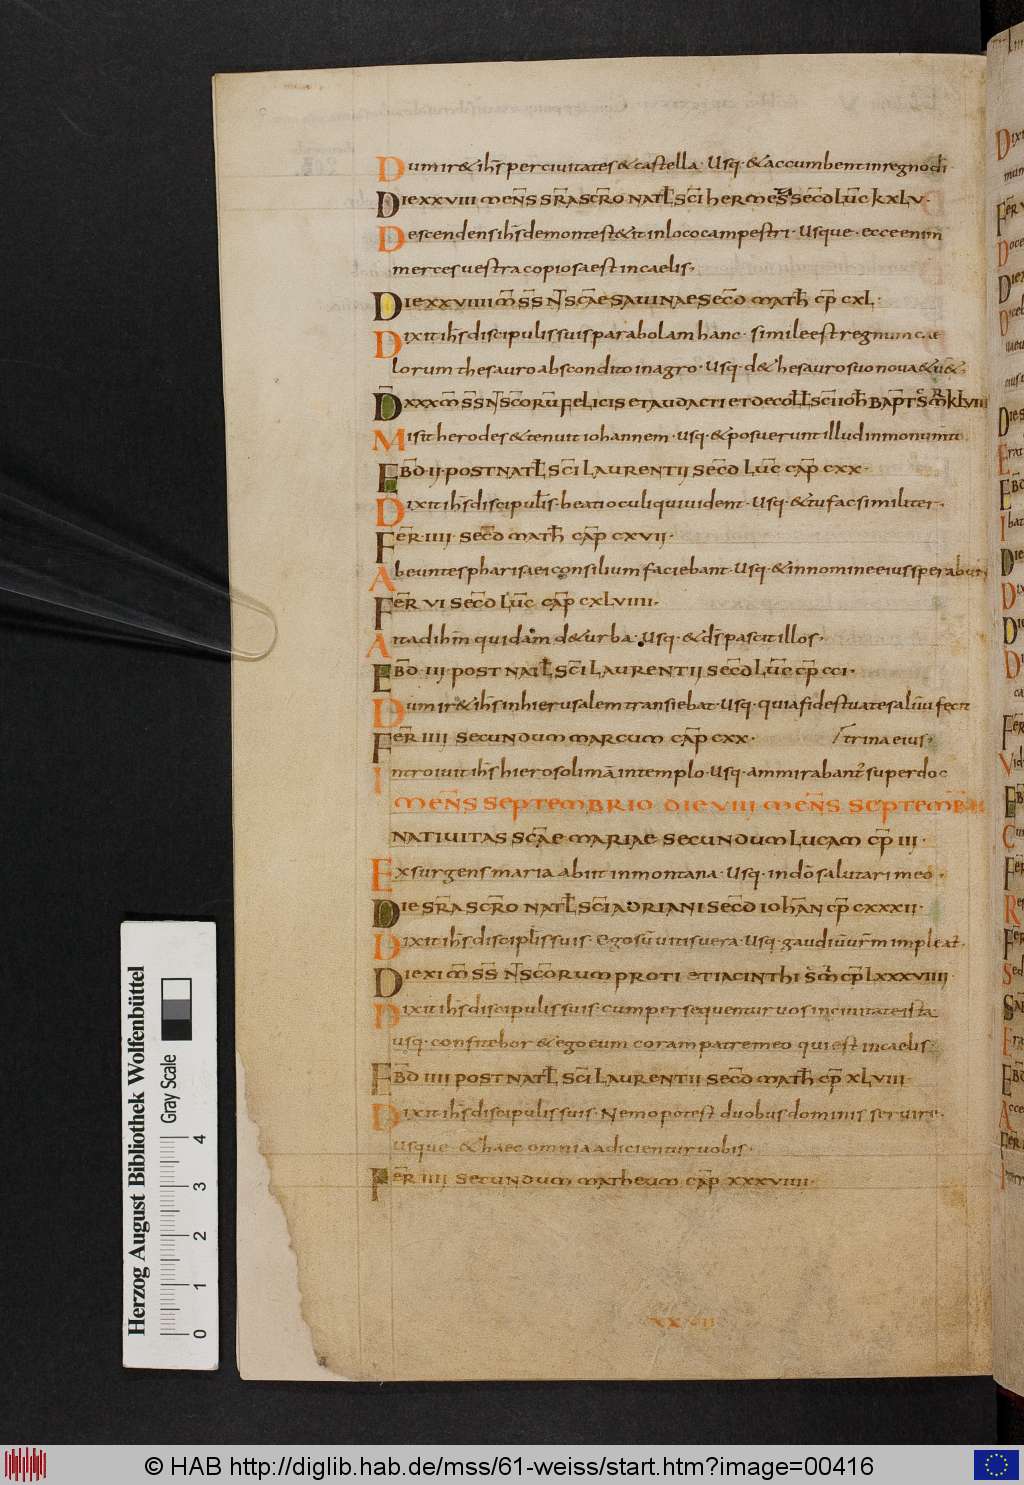 Dum ir& ih̅s per ciuitates & castella · Usq · & accumbent in regno d̅i
DIE XXVIII MEN̅S S̅RA SC̅RO NAT̅L SC̅I HERMES SEC̅D LUC̅ k XLV ·
Descendens ih̅s de monte st&it in loco campestri · Usque · ecce enim
merces uestra copiosa est in caelis ·
DIE XXVIIII M̅ S̅S N̅T SC̅AE SAUINAE SEC̅D MATH̅ CP̅ CXL ·
Dixit ih̅s discipulis suis parabolam hanc · simile est regnum cae
lorum thesauro abscondito in agro · Usq · de thesauro suo noua & u&
D̅ XXX M̅ S̅S N̅T SC̅ORU̅ FELICIS ET AUDACTI ET DECOLL̅ SC̅I IOH̅ BAPT̅ S̅ M̅R k LVIII
Misit herodes & tenuit iohannem · usq · & posuerunt illud in monum̅to
EBD̅ · II · POST NAT̅L SC̅I LAURENTII SEC̅D LUC̅ CAP̅ CXX ·
Dixit ih̅s discipul̅is · beati oculi qui uident · Usq · & tu fac similiter ·
FER̅ · IIII · SEC̅D MATH̅ CAP̅ CXVII ·
Abeuntes pharisaei consilium faciebant · Usq · & in nomine eius sperabunt
FER̅ VI SEC̅D LUC̅ CAP̅ CXLVIIII ·
Ait ad ih̅m quidam de turba · Usq · & d̅s pascit illos ·
EBD̅ · III · POST NAT̅L SC̅I LAURENTII SEC̅D LUC̅ CP̅ CCI ·
Dum ir& ih̅s in hierusalem transiebat · Usq · quia fides tua te saluu̅ fecit
FER̅ IIII SECUNDUM MARCUM CAP̅ CXX · / trina eius ·
Introiuit ih̅s hierosolima̅ in templo · Usq · ammirabant̅ super doc
MEN̅S SEPTEMBRIO DIE VIII MEN̅S SEPTEMB̅
NATIVITAS SC̅AE MARIAE SECUNDUM LUCAM CP̅ III ·
Exsurgens maria abiit in montana · Usq · in d̅o salutari meo ·
DIE S̅RA SC̅RO NAT̅L SC̅I ADRIANI SEC̅D IOHAN̅ CP̅ CXXXII ·
Dixit ih̅s discipl̅is suis · Ego su̅ uitis uera · Usq · gaudiu̅ ur̅m impleat̅ ·
DIE XI M̅ S̅S N̅T SC̅ORUM PROTI ET IACINTHI S̅ M̅T CP̅ LXXXVIIII
Dixit ih̅s discipulis suis · cum persequentur uos in ciuitate ista
usq · confitebor & ego eum coram patre meo qui est in caelis ·
EBD̅ IIII POST NAT̅L SC̅I LAURENTII SEC̅D MATH̅ CP̅ XLVIII
Dixit ih̅s discipulis suis · Nemo potest duobus dominis seruire ·
usque · & haec omnia adicientur uobis ·
FER̅ IIII SECUNDUM MATHEUM CAP̅ XXXVIIII ·
Herzog August Bibliothek Wolfenbüttel
Gray Scale
0 1 2 3 4
© HAB http://diglib.hab.de/mss/61-weiss/start.htm?image=00416